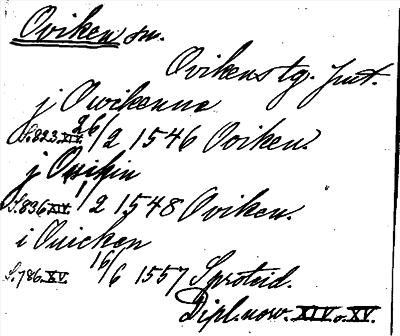 Oviken sn.
Ovikens tg. Jmt.
j Owikenne
S. 823. XIV. 26/2 1546 Oviken.
j Ouikin
S. 836 XIV. 1/2 1548 Oviken.
i Ouicken
S. 786. XV. 16/6 1557 Sproteid.
Dipl. now. XIV o. XV.